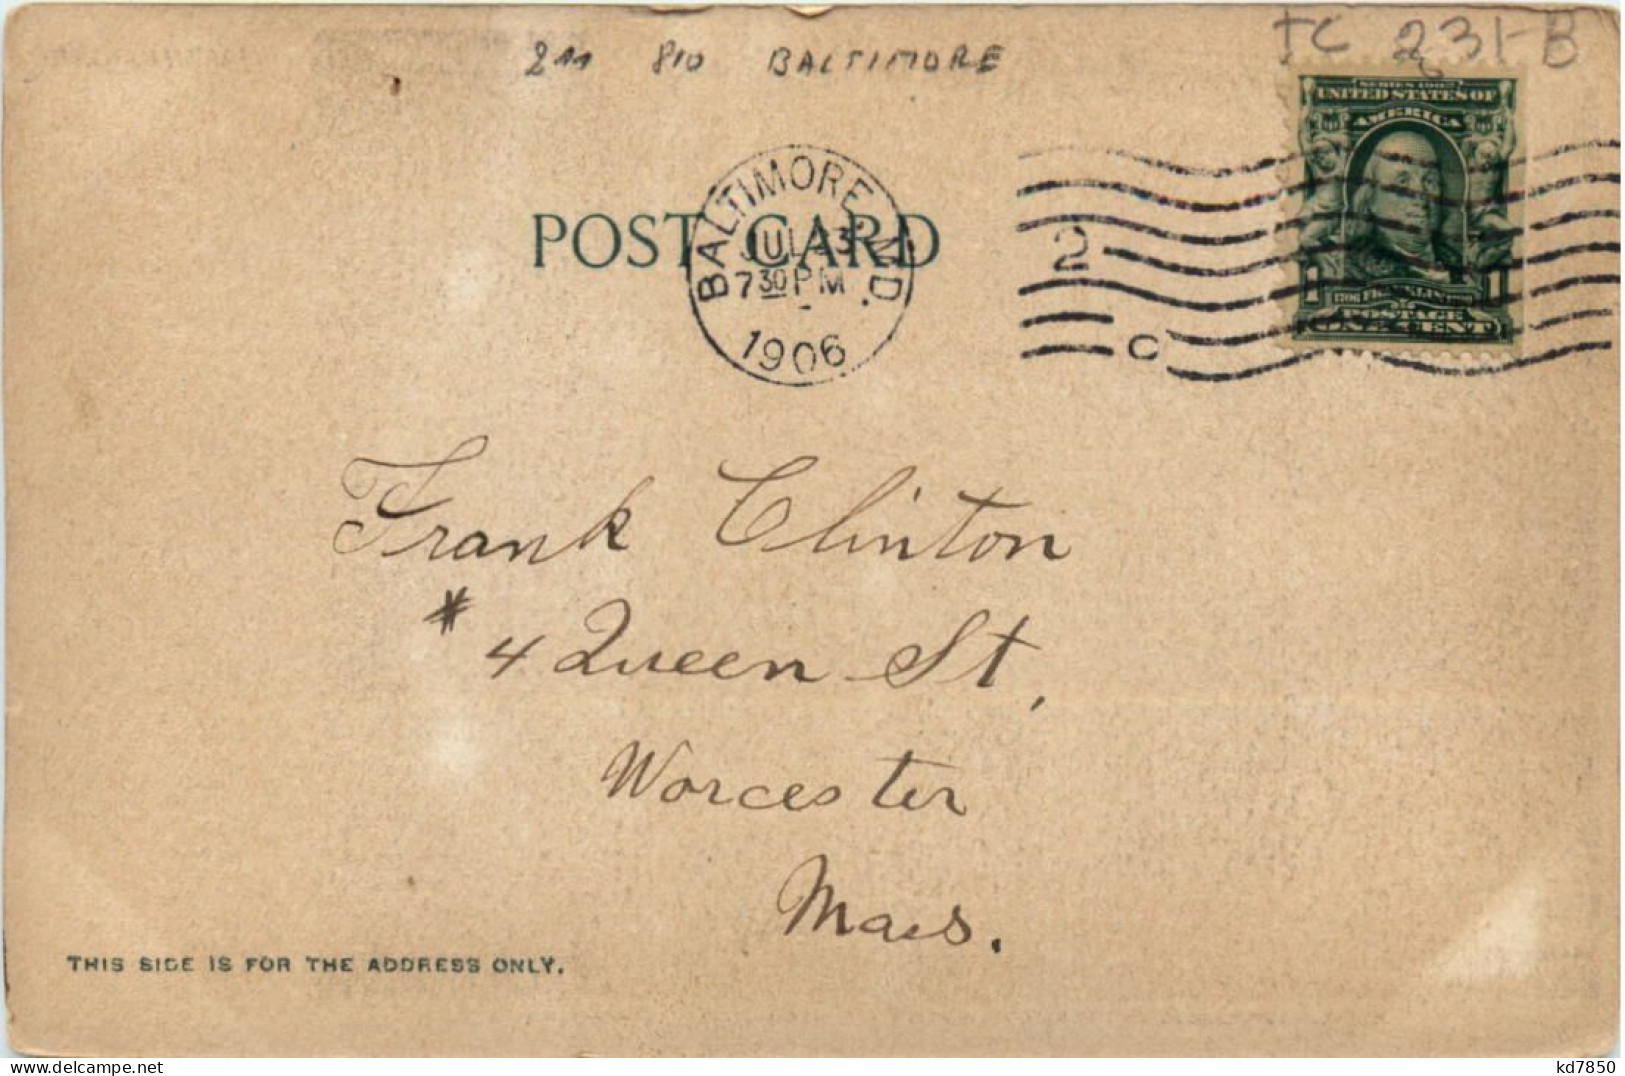 211 810 BALTIMORE
TC 231-B
SERIES 1902
UNITED STATES OF
AMERICA
BALTIMORE, MD.
JUL 23
7 30 PM
1906
POST CARD
2
C
1 1
1706 FRANKLIN 1790
POSTAGE
ONE CENT
Frank Clinton
# 4 Queen St,
Worcester
Mass.
THIS SIDE IS FOR THE ADDRESS ONLY.
kd7850